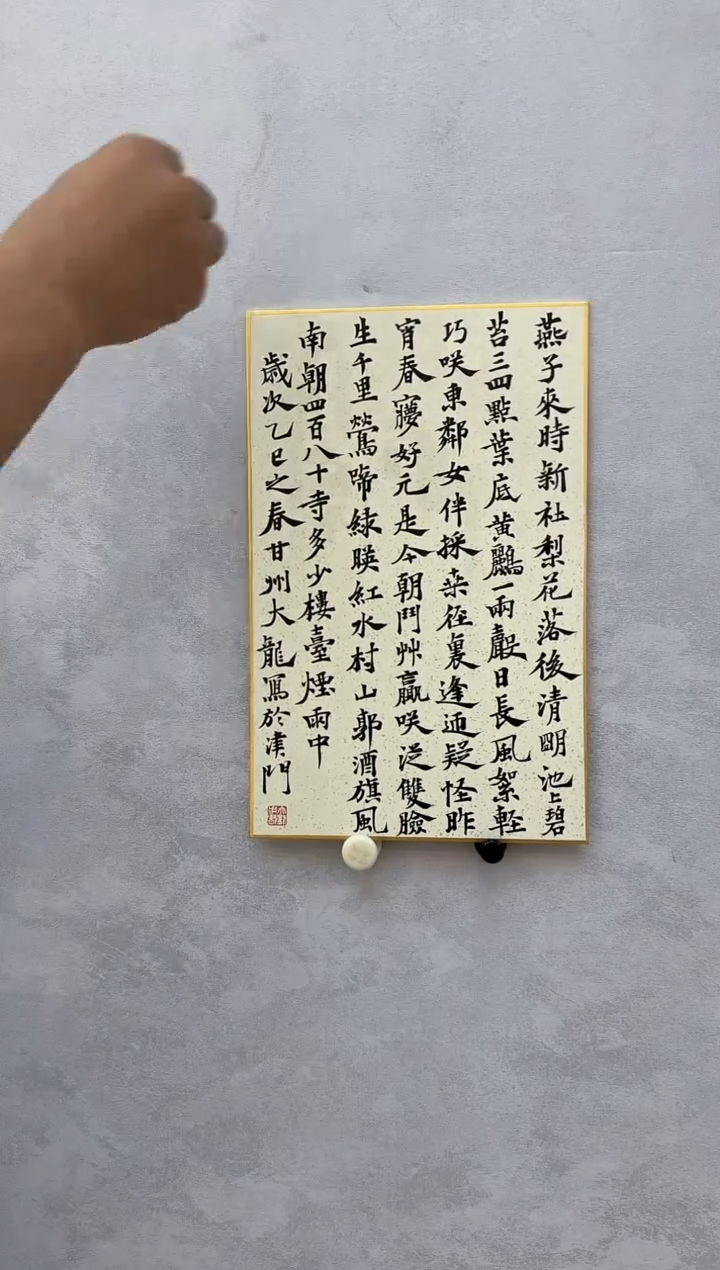 燕子來時新社梨花落後清朙池上碧
苔三四點葉底黄鸝一兩聲日長風絮輕
巧咲東鄰女伴採桑徑裏逢迎疑怪昨
宵春寢好元是今朝鬥艸贏咲泛雙臉
生千里鶯啼綠暎紅水村山郭酒旗風
南朝四百八十寺多少樓臺煙雨中
歲次乙巳之春甘州大龍寫於津門